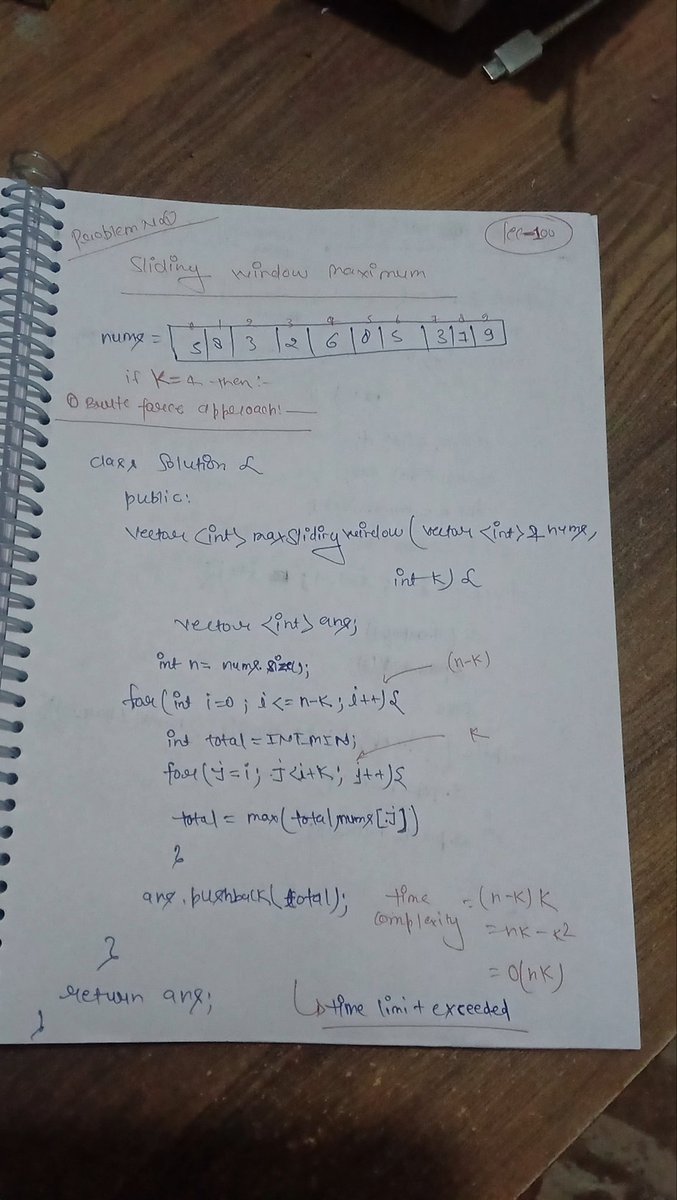 Problem No
lec-100
Sliding window maximum
0 1 2 3 4 5 6 7 8 9
nums = 5 8 3 2 6 0 5 3 7 9
if K=4 then:-
① Brute force approach:-
class Solution {
public:
vector <int> maxSlidingwindow (vector <int> & nums,
int K) {
vector <int> ans;
int n = nums.size();
(n-K)
for(int i=0; i<=n-K; i++) {
int total = INT_MIN;
K
for(j=i; j<i+K; j++) {
total = max(total, nums[j])
}
ans.pushback(total);
time complexity = (n-K) K
= nK - K²
= O(nK)
}
return ans;
↳ time limit exceeded
}